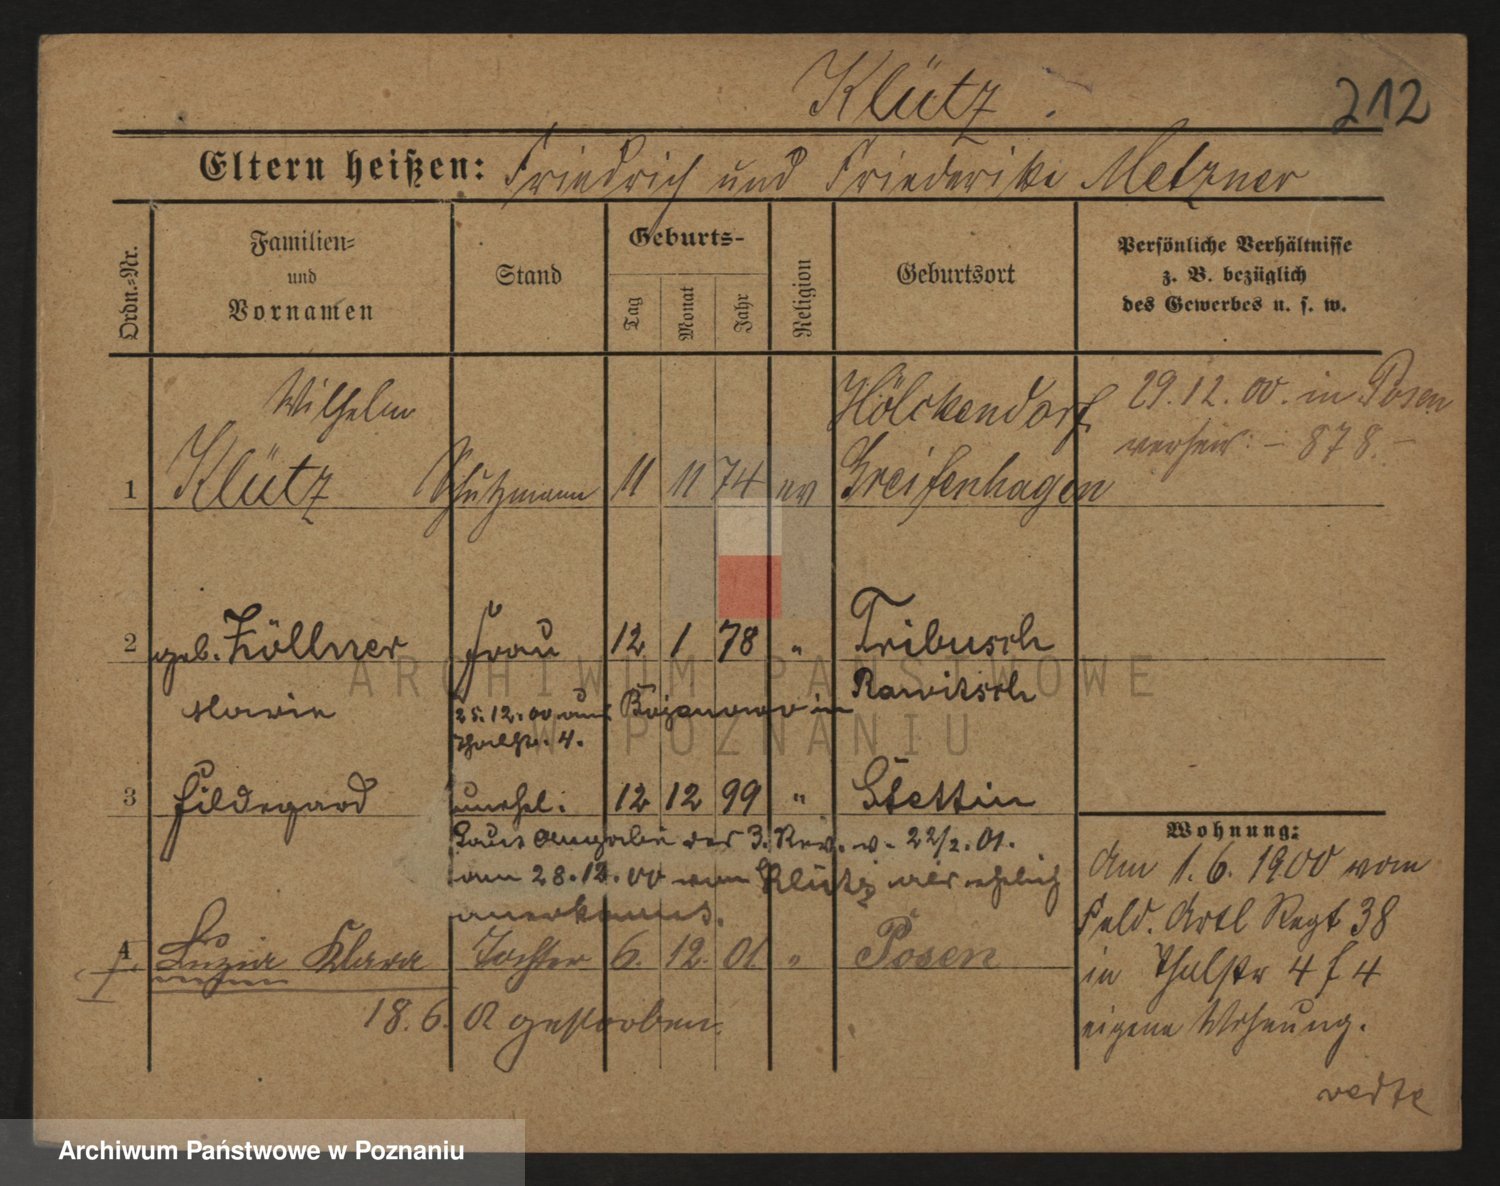 Klütz.
212
Eltern heißen: Friedrich und Friederike Metzner
Ordn.-Nr.
Familien-
und
Vornamen
Stand
Geburts-
Tag
Monat
Jahr
Religion
Geburtsort
Persönliche Verhältnisse
z. B. bezüglich
des Gewerbes u. s. w.
Wilhelm
1 Klütz Schutzmann 11 11 74 ev
Hölckendorf
Greifenhagen
29.12.00. in Posen
verheir: – 878. –
2 geb. Zöllner Frau 12 1 78 " Tribusch
Marie
Rawitsch
25.12.00 aus Bojanowo in
Thalstr. 4.
3 Hildegard unehel. 12 12 99 " Stettin
Laut Angabe des 3. Rev. v. 22/2.01.
am 28.12.00 von Klütz als ehelich
anerkannt.
4 Luzia Klara Tochter 6. 12. 01 " Posen
18.6. gestorben.
Wohnung:
Am 1.6.1900 vom
Feld. Artl Regt 38
in Thalstr 4 f 4
eigene Wohnung.
verte
ARCHIWUM PAŃSTWOWE
W POZNANIU
Archiwum Państwowe w Poznaniu